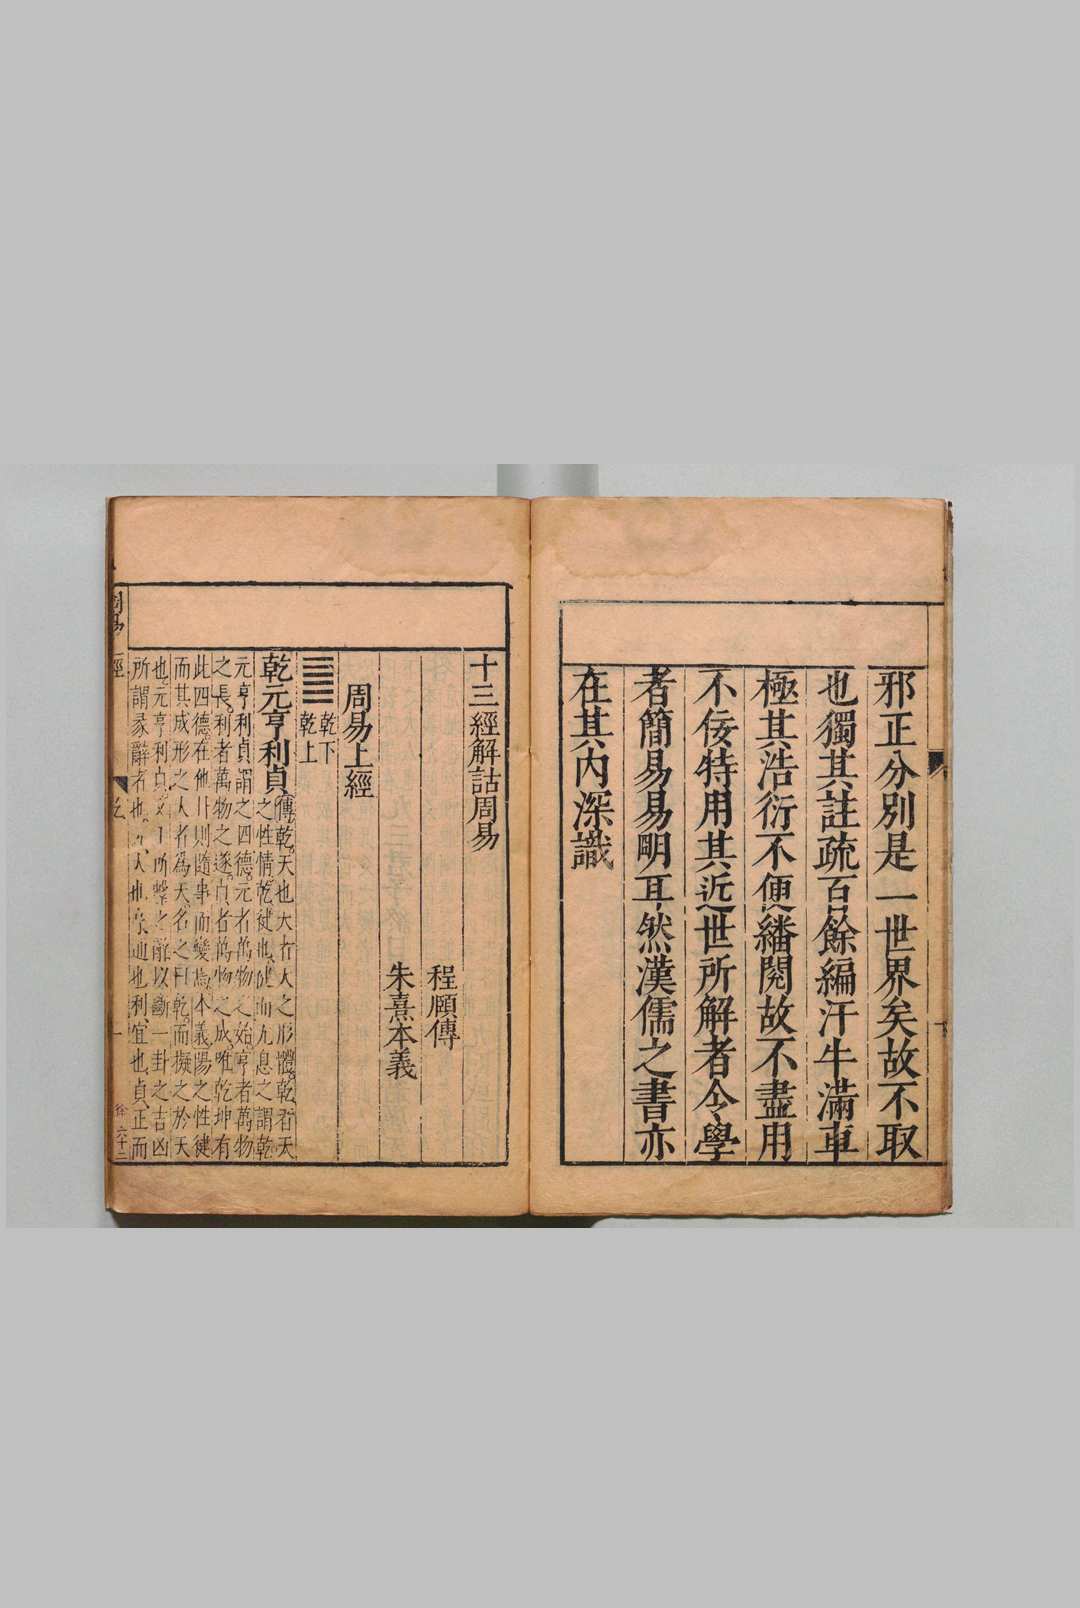 邪正分別是一世界矣故不取
也獨其註疏百餘編汗牛滿車
極其浩衍不便繙閱故不盡用
不佞特用其近世所解者令學
者簡易易明耳然漢儒之書亦
在其內深識
十三經解詁周易
程頤傳
朱熹本義
周易上經
乾下
乾上
乾元亨利貞
傳乾。天也天者天之形體。乾者天
之性情。乾健也健而无息之謂乾
元亨利貞謂之四德。元者萬物之始。亨者萬物
之長。利者萬物之遂。貞者萬物之成。唯乾坤有
此四德在他卦則隨事而變焉本義陽之性健
而其成形之大者為天名之曰乾。而擬之於天
也元亨利貞文王所繫之辭以斷一卦之吉凶
所謂彖辭者也。元大也亨通也利宜也貞正而
周易
經
乾
一
徐 六十三